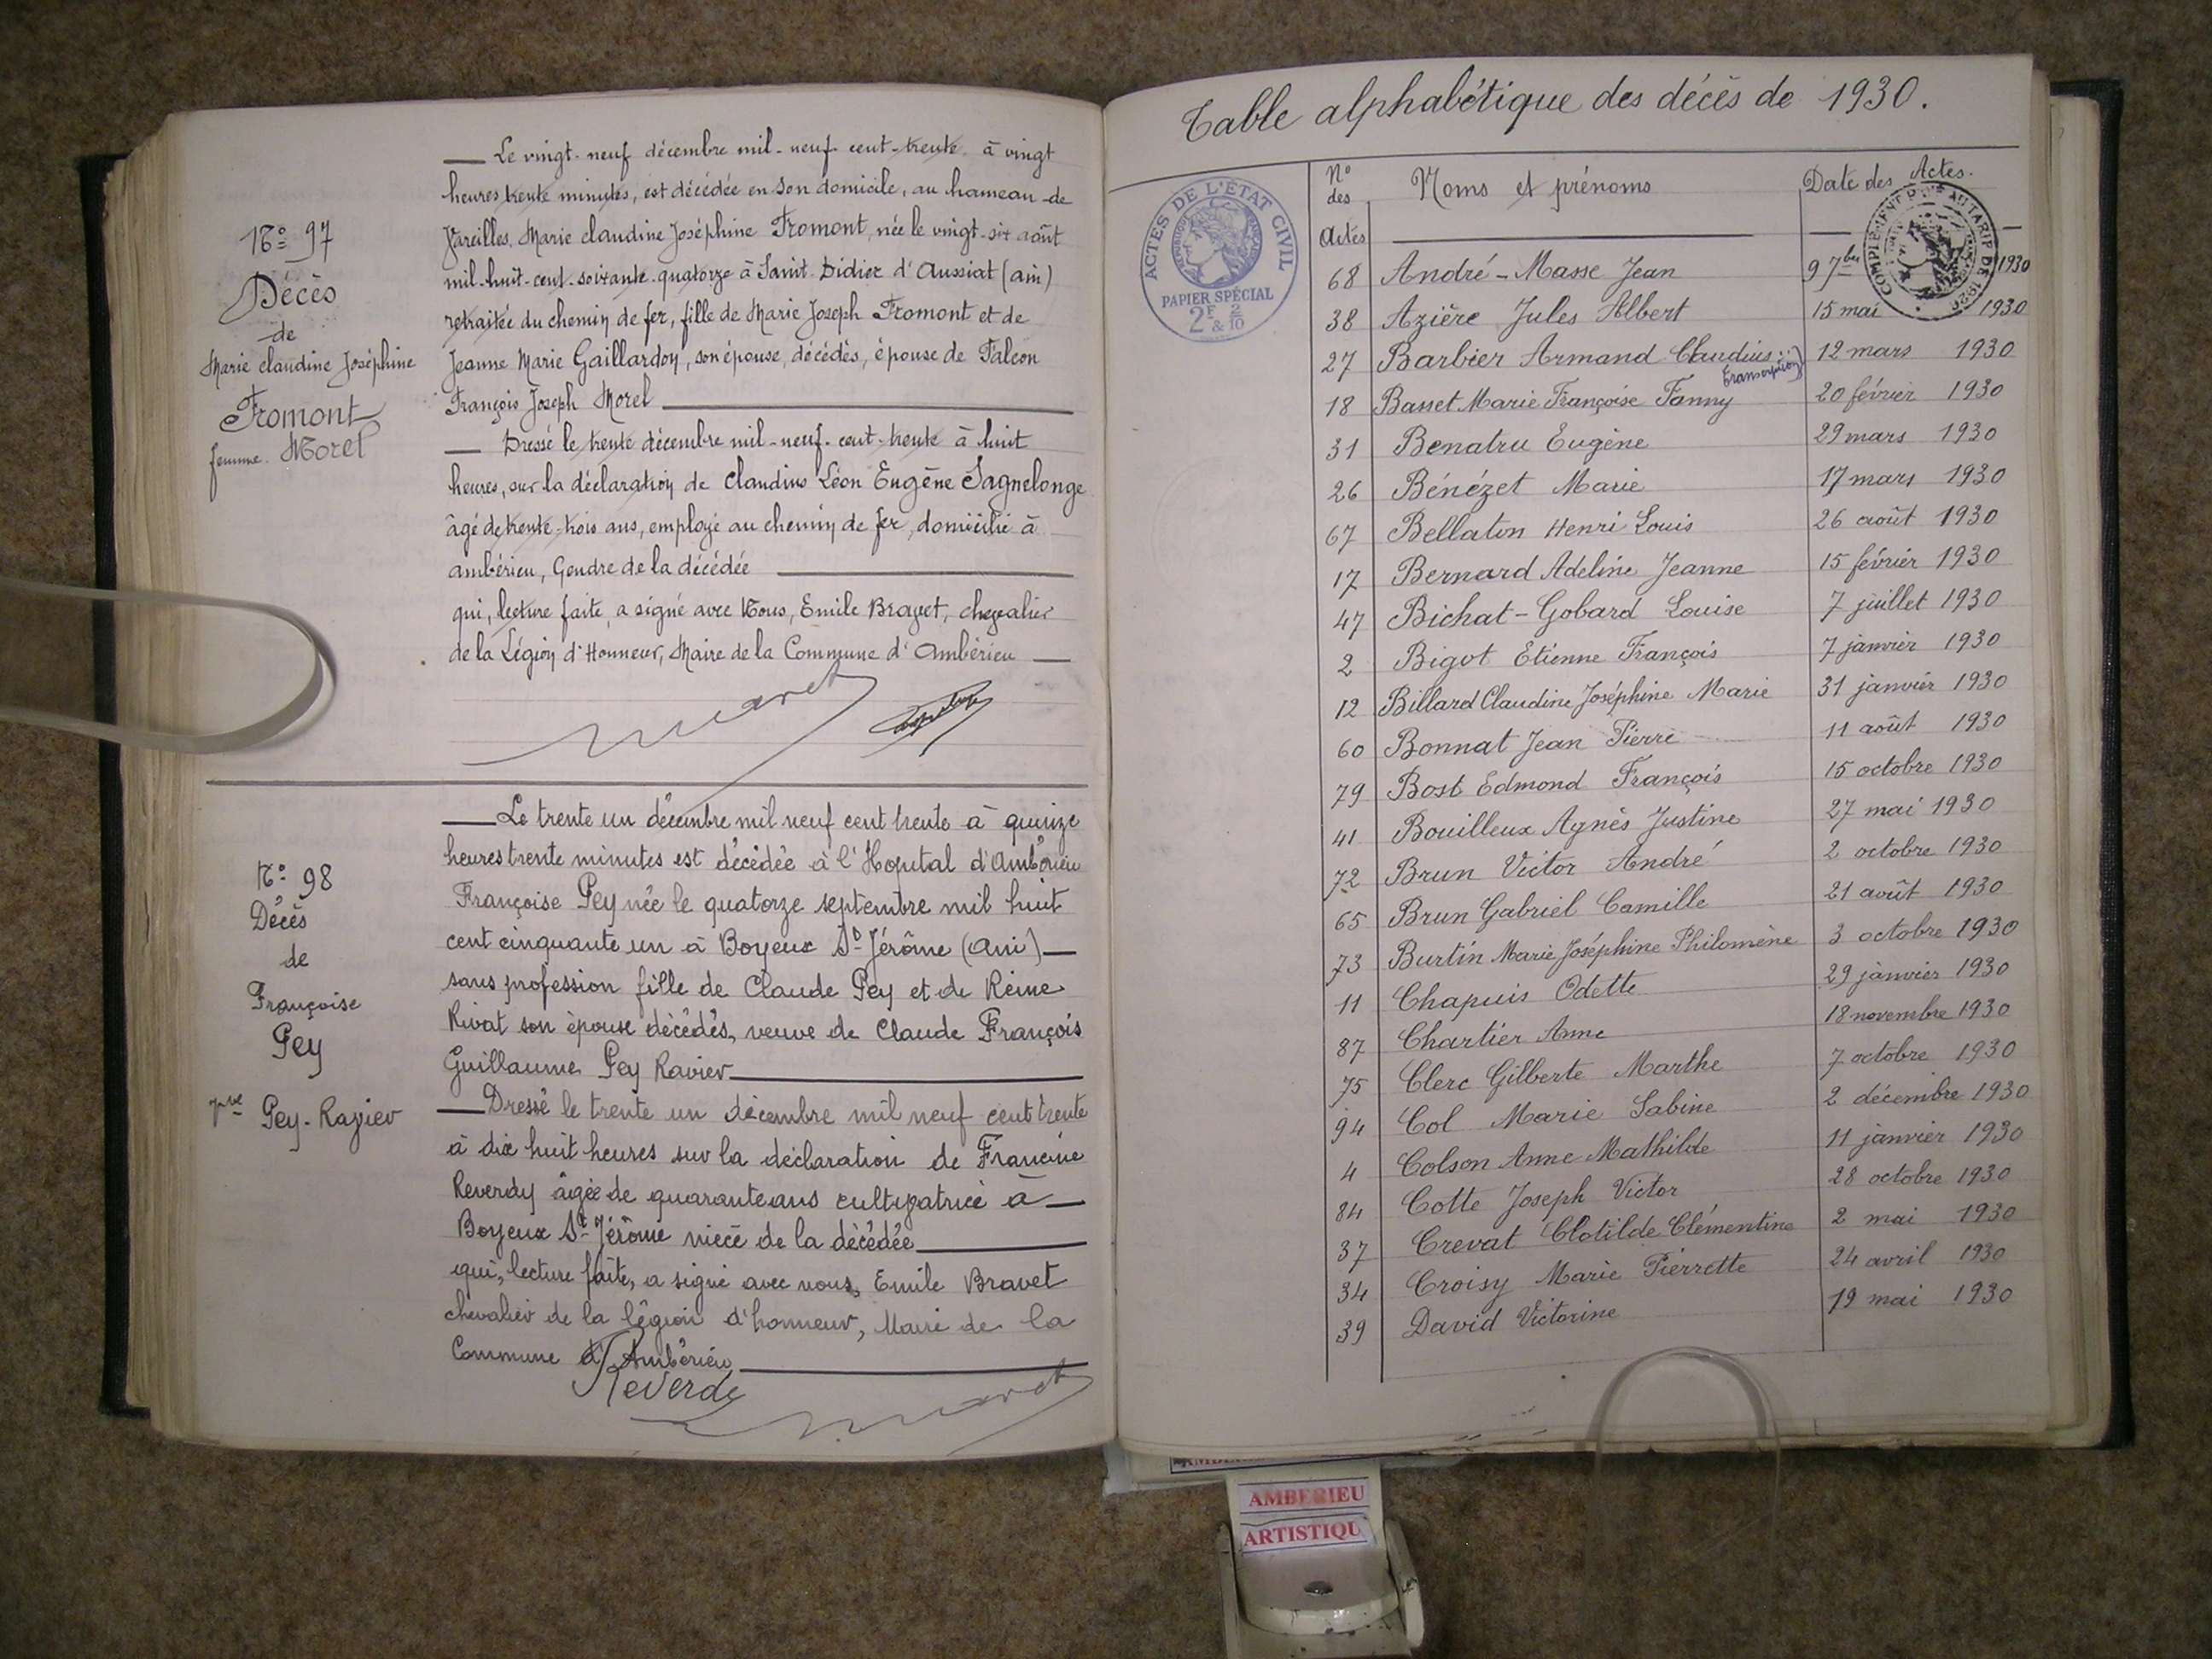 N° 97
Décès
de
Marie Claudine Joséphine
Fromont
femme Morel
Le vingt-neuf décembre mil-neuf-cent-trente à vingt
heures trente minutes, est décédée en son domicile, au hameau de
Vareilles, Marie Claudine Joséphine Fromont, née le vingt-six août
mil-huit-cent-soixante-quatorze à Saint-Didier d'Aussiat (ain)
retraitée du chemin de fer, fille de Marie Joseph Fromont et de
Jeanne Marie Gaillardon, son épouse, décédés, épouse de Falcon
François Joseph Morel
Dressé le trente décembre mil-neuf-cent-trente à huit
heures, sur la déclaration de Claudius Léon Eugène Sagnelonge
âgé de trente-trois ans, employé au chemin de fer, domicilié à
ambérieu, Gendre de la décédée
qui, lecture faite, a signé avec Nous, Emile Bravet, chevalier
de la Légion d'Honneur, Maire de la Commune d'Ambérieu
N° 98
Décès
de
Françoise
Pey
vve Pey-Ravier
Le trente un décembre mil neuf cent trente à quinze
heures trente minutes est décédée à l'Hopital d'Ambérieu
Françoise Pey née le quatorze septembre mil huit
cent cinquante un à Boyeux St Jérôme (Ain)
sans profession fille de Claude Pey et de Reine
Rivat son épouse décédés, veuve de Claude François
Guillaume Pey Ravier
Dressé le trente un décembre mil neuf cent trente
à dix huit heures sur la déclaration de Francine
Reverdy âgée de quarante ans cultivatrice à
Boyeux St Jérôme nièce de la décédée
qui, lecture faite, a signé avec nous, Emile Bravet
chevalier de la légion d'honneur, Maire de la
Commune d'Ambérieu
Reverdy
Table alphabétique des décès de 1930.
ACTES DE L'ÉTAT CIVIL
PAPIER SPÉCIAL
2F & 2/10
N° des Actes Noms et prénoms Date des Actes.
68 André-Masse Jean 9 7bre 1930
38 Azière Jules Albert 15 mai 1930
27 Barbier Armand Claudius (transcription) 12 mars 1930
18 Basset Marie Françoise Fanny 20 février 1930
31 Benatru Eugène 29 mars 1930
26 Bénézet Marie 17 mars 1930
67 Bellaton Henri Louis 26 août 1930
17 Bernard Adeline Jeanne 15 février 1930
47 Bichat-Gobard Louise 7 juillet 1930
2 Bigot Etienne François 7 janvier 1930
12 Billard Claudine Joséphine Marie 31 janvier 1930
60 Bonnat Jean Pierre 11 août 1930
79 Bost Edmond François 15 octobre 1930
41 Bouilleux Agnès Justine 27 mai 1930
72 Brun Victor André 2 octobre 1930
65 Brun Gabriel Camille 21 août 1930
73 Burtin Marie Joséphine Philomène 3 octobre 1930
11 Chapuis Odette 29 janvier 1930
87 Chartier Anne 18 novembre 1930
75 Clerc Gilberte Marthe 7 octobre 1930
94 Col Marie Sabine 2 décembre 1930
4 Colson Anne Mathilde 11 janvier 1930
84 Cotte Joseph Victor 28 octobre 1930
37 Crevat Clotilde Clémentine 2 mai 1930
34 Croisy Marie Pierrette 24 avril 1930
39 David Victorine 19 mai 1930
AMBERIEU
ARTISTIQU